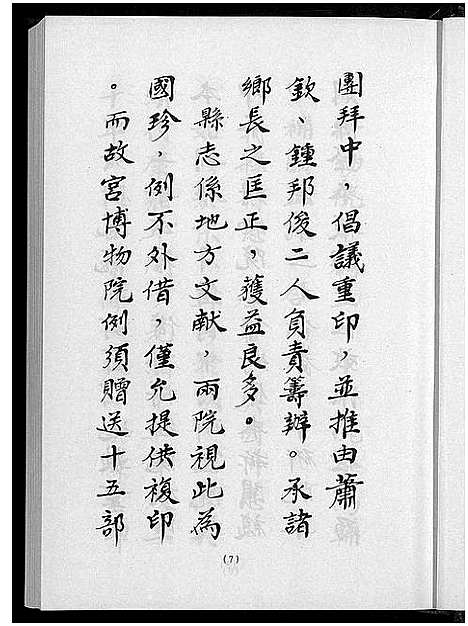 團拜中，倡議重印，並推由蕭
欽、鍾邦俊二人負責籌辦。承諸
鄉長之匡正，獲益良多。
縣志係地方文献，兩院視此為
國珍，例不外借，僅允提供複印
。而故宮博物院例須贈送十五部
(7)